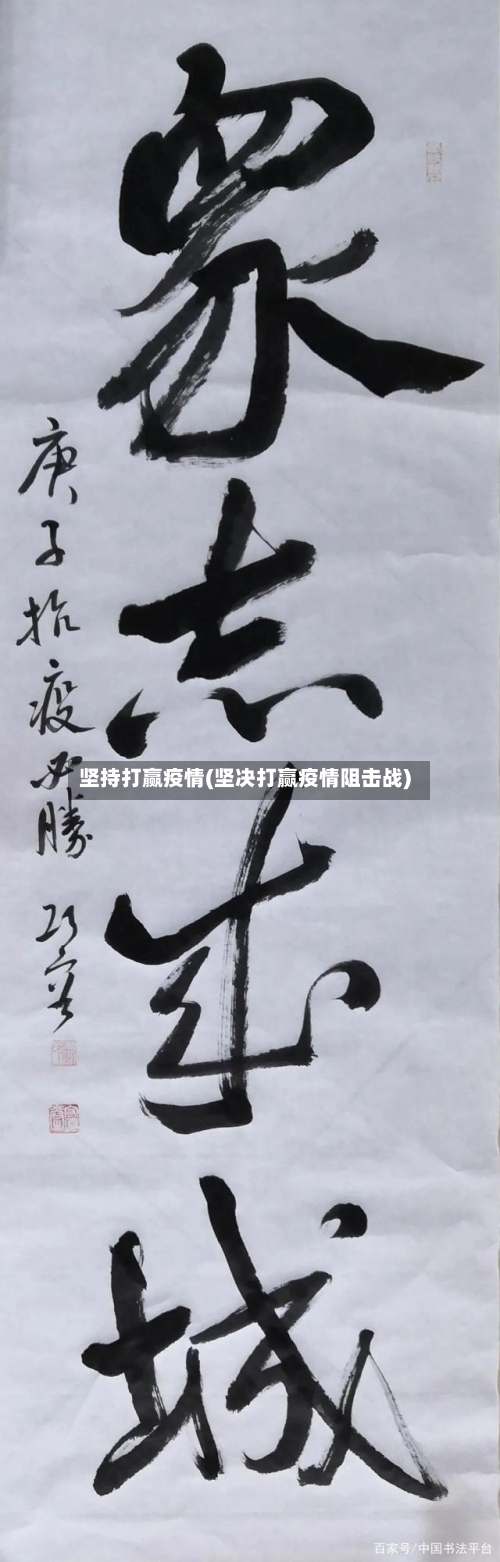 眾志成城
庚子抗疫必勝
坚持打赢疫情(坚决打赢疫情阻击战)
百家号/中国书法平台